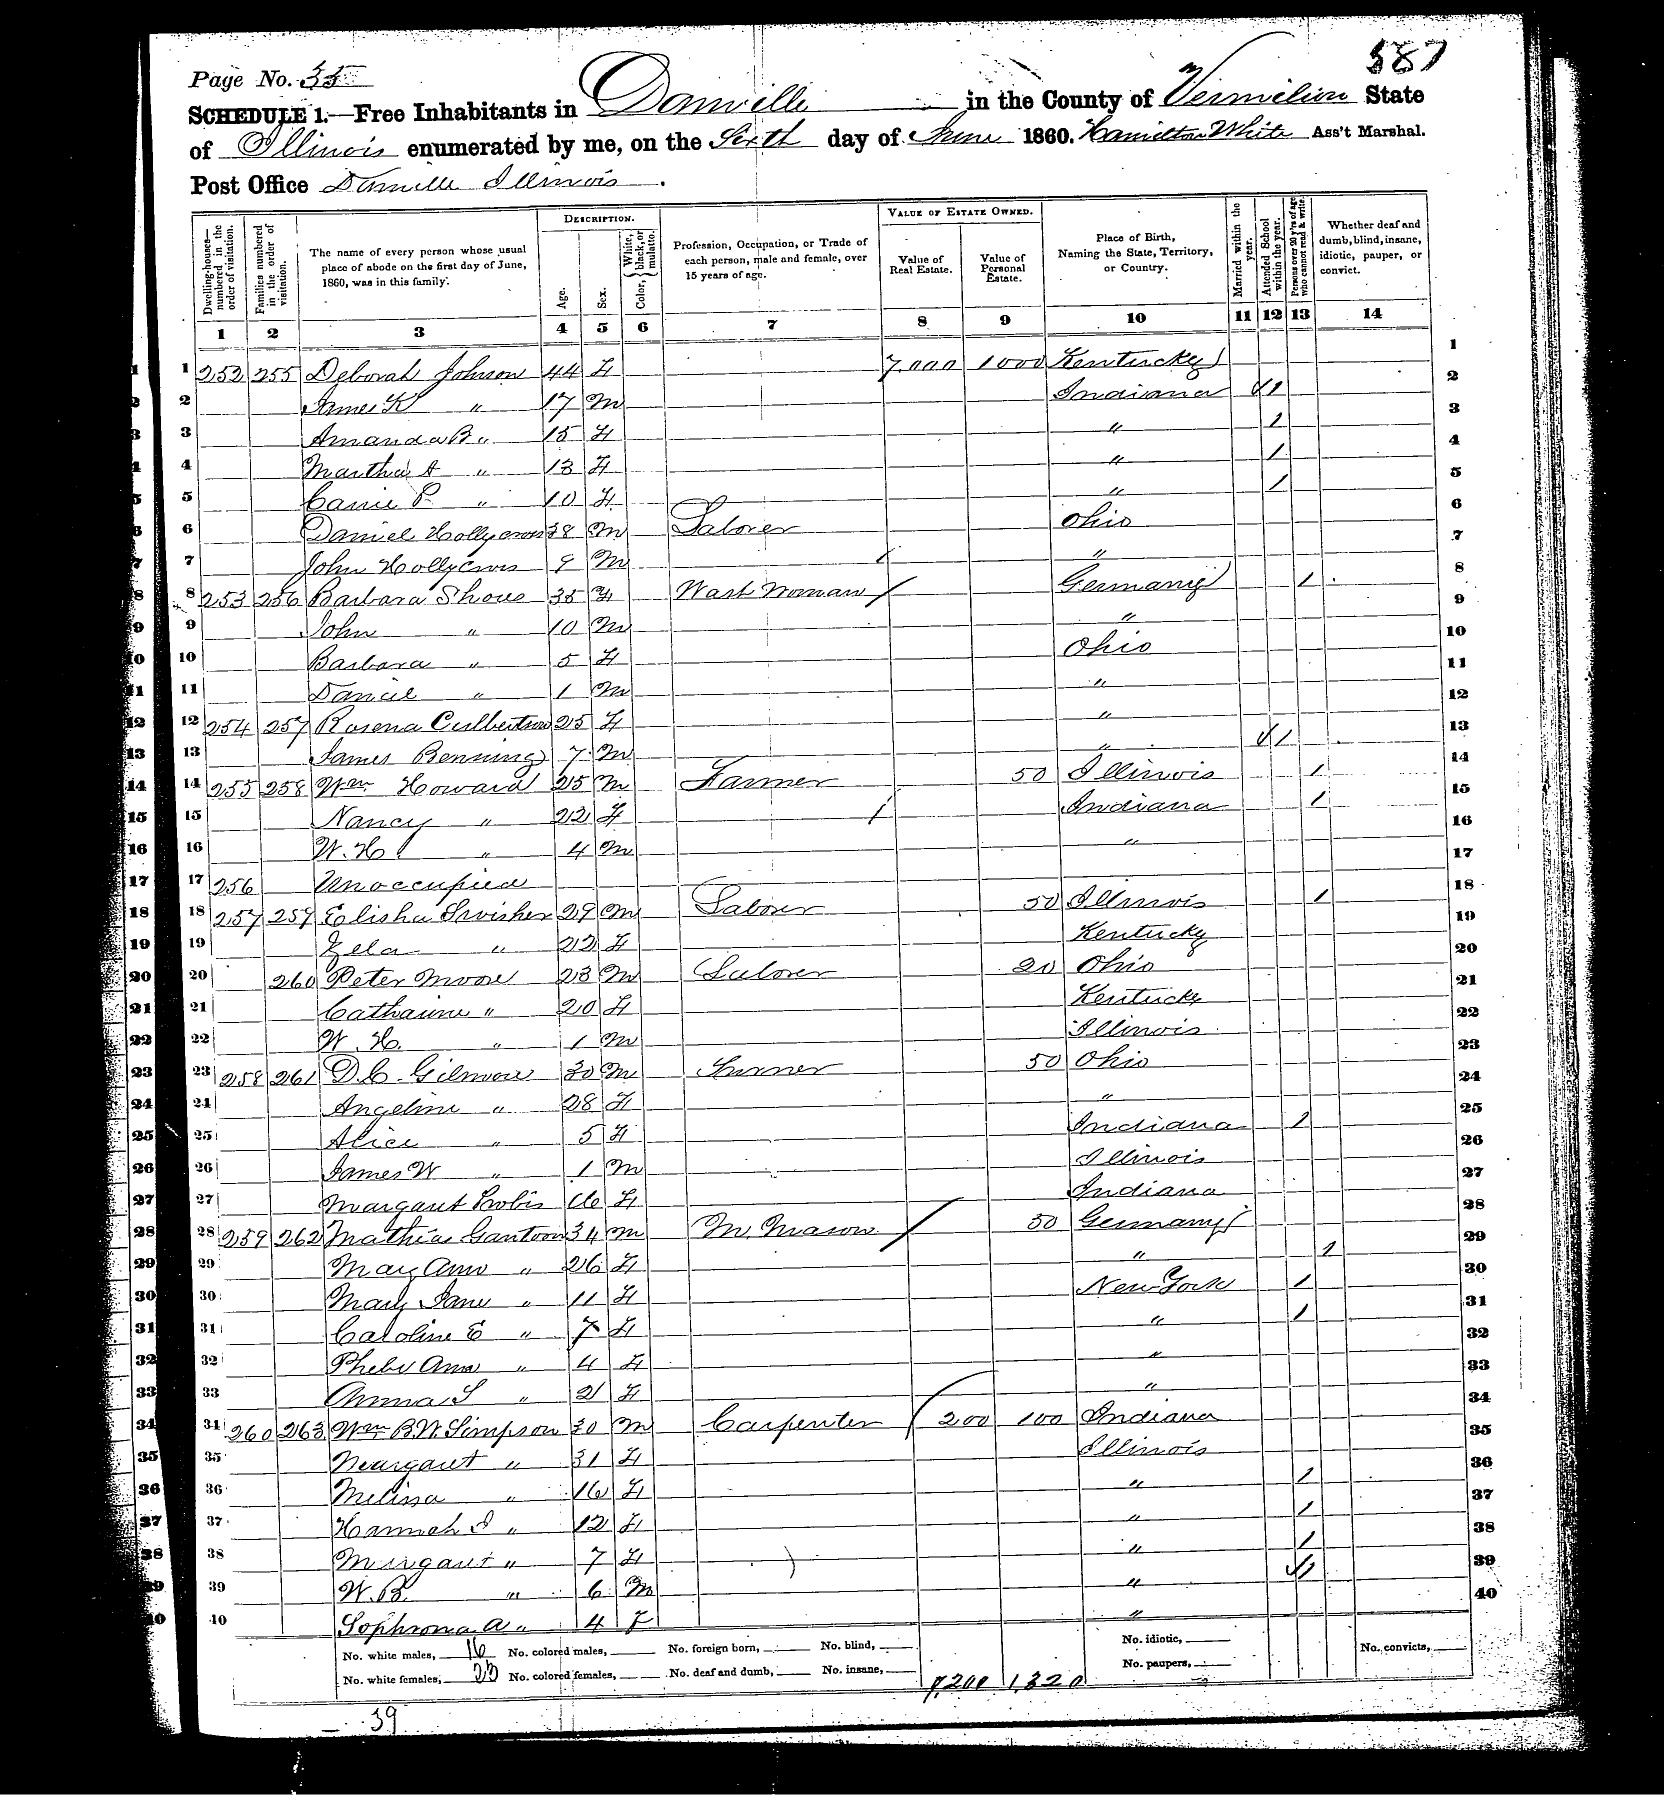 587
Page No. 35
SCHEDULE 1.—Free Inhabitants in Danville in the County of Vermilion State
of Illinois enumerated by me, on the Sixth day of June 1860. Hamilton White Ass't Marshal.
Post Office Danville Illinois.
Dwelling-houses—numbered in the order of visitation.
Families numbered in the order of visitation.
The name of every person whose usual place of abode on the first day of June, 1860, was in this family.
DESCRIPTION.
Age.
Sex.
Color, { White, black, or mulatto.
Profession, Occupation, or Trade of each person, male and female, over 15 years of age.
VALUE OF ESTATE OWNED.
Value of Real Estate.
Value of Personal Estate.
Place of Birth, Naming the State, Territory, or Country.
Married within the year.
Attended School within the year.
Persons over 20 y'rs of age who cannot read & write.
Whether deaf and dumb, blind, insane, idiotic, pauper, or convict.
1 2 3 4 5 6 7 8 9 10 11 12 13 14
1 252 255 Deborah Johnson 44 F 7,000 1000 Kentucky 1
2 James K " 17 M Indiana 1 2
3 Amanda B " 15 F " 1 3
4 Martha A " 13 F " 1 4
5 Carrie P " 10 F " 1 5
6 Daniel Hollycross 38 M Laborer Ohio 6
7 John Hollycross 9 M " 7
8 253 256 Barbara Shous 35 F Wash Woman Germany 1 8
9 John " 10 M " 9
10 Barbara " 5 F Ohio 10
11 Daniel " 1 M " 11
12 254 257 Rosena Culbertson 25 F " 12
13 James Benning 7 M " 1 13
14 255 258 Wm Howard 25 M Farmer 50 Illinois 1 14
15 Nancy " 22 F Indiana 1 15
16 W. H. " 4 M " 16
17 256 Unoccupied 17
18 257 259 Elisha Swisher 29 M Laborer 50 Illinois 1 18
19 Zela " 22 F Kentucky 19
20 260 Peter Moore 23 M Laborer 20 Ohio 20
21 Catharine " 20 F Kentucky 21
22 W. H. " 1 M Illinois 22
23 258 261 D. C. Gilmore 30 M 50 Ohio 23
24 Angeline " 28 F " 24
25 Alice " 5 F Indiana 1 25
26 James W " 1 M Illinois 26
27 Margaret 16 F Indiana 27
28 259 262 Mathias 34 M M. Mason 50 Germany 28
29 Mary Ann " 26 F " 1 29
30 Mary Jane " 11 F New York 1 30
31 Caroline E " 7 F " 1 31
32 Phebe Ann " 4 F " 32
33 Anna S " 2 F " 33
34 260 263 Wm B. W. Simpson 30 M Carpenter 200 100 Indiana 34
35 Margaret " 31 F Illinois 35
36 Melissa " 16 F " 1 36
37 Hannah J " 12 F " 1 37
38 Margaret " 7 F " 1 38
39 W. B. " 6 M " 1 39
40 Sophrona A " 4 F " 40
No. white males, 16 No. colored males, No. foreign born, No. blind, No. idiotic, No. convicts,
No. white females, 23 No. colored females, No. deaf and dumb, No. insane, 7,200 1,320 No. paupers,
39